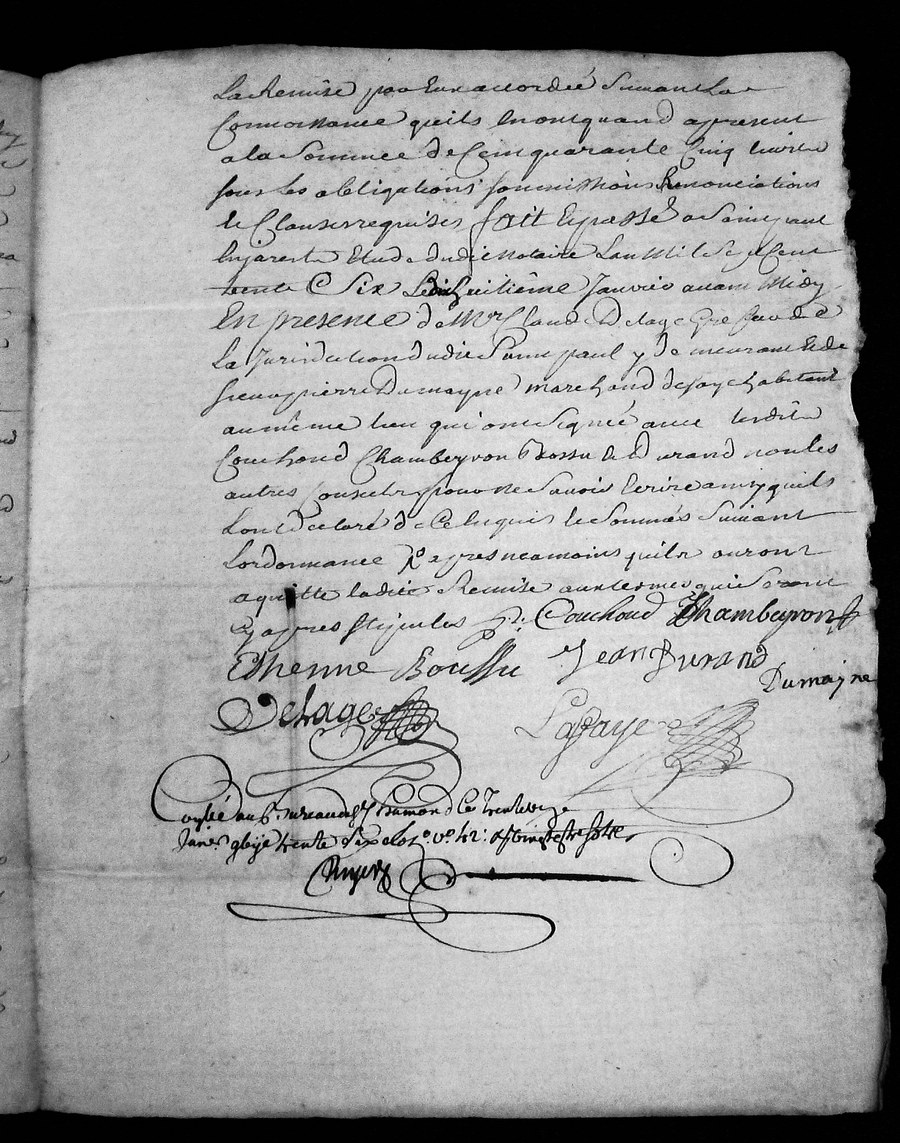 La Remise par Eux accordée Suivant La
Connoissance quils en ont quand a present
a la Somme de Cent quarante Cinq livres
sous les obligations soumissions Renonciations
et Clauses requises fait et passé a Saint paul
en jarest Etude dudit Notaire L'an Mil Sept Cent
trente & Six Le dix huitième Janvier avant Midy
En presence de Mr Claude Delage Greffier de
la Jurisdiction dudit Saint paul y demeurant et de
sieur pierre Dumayne marchand de soye habitant
au même lieu qui ont Signé avec lesdits
Couchoud Chambeyron Bossu et Durand non les
autres pour ne Savoir Ecrire ainsy quils
L'ont declaré de Ce Enquis et Sommés Suivant
L'ordonnance apres neamoins quils auront
aquitté ladite Remise aux termes qui Seront
cy apres stipules Couchoud Chambeyron
Ethenne Boussu Jean Durand
Dumayne
Delage
Lafaye
au trente
Janer trente Six